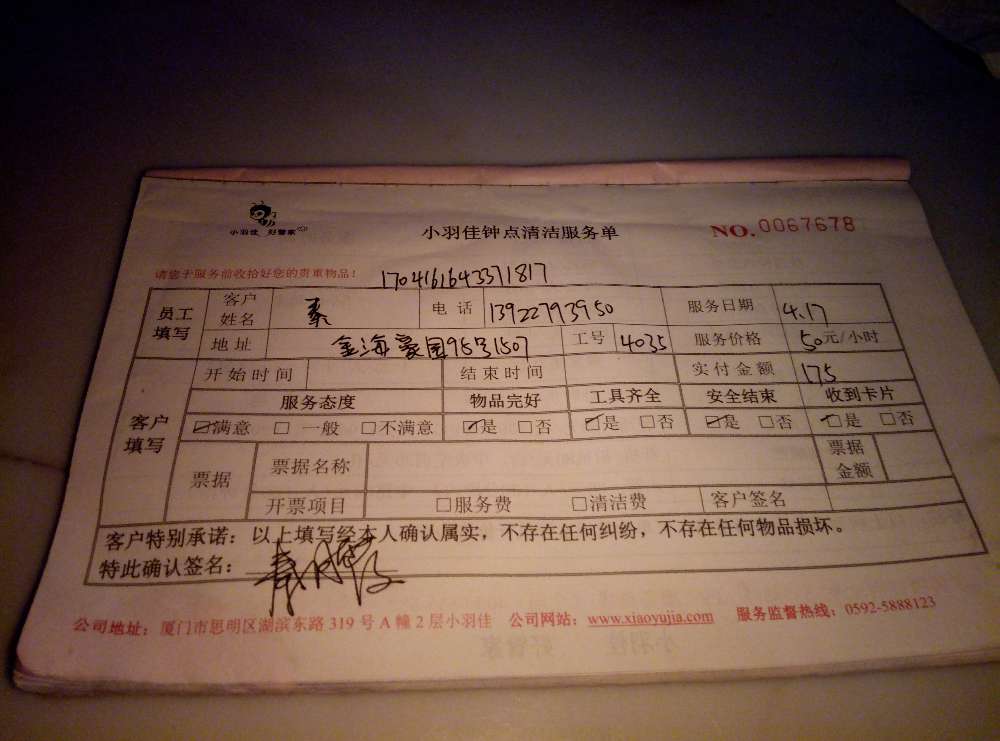 小羽佳 好管家
小羽佳钟点清洁服务单
NO. 0067678
请您于服务前收拾好您的贵重物品!
1704161643371817
员工填写 客户姓名 秦 电话 13922793950 服务日期 4.17
地址 金海豪园 1507 工号 4035 服务价格 50元/小时
客户填写 开始时间 结束时间 实付金额 175
服务态度 物品完好 工具齐全 安全结束 收到卡片
☑满意 □一般 □不满意 ☑是 □否 ☑是 □否 ☑是 □否 ☑是 □否
票据 票据名称 票据金额
开票项目 □服务费 □清洁费 客户签名
客户特别承诺：以上填写经本人确认属实，不存在任何纠纷，不存在任何物品损坏。
特此确认签名：
公司地址：厦门市思明区湖滨东路 319 号 A 幢 2 层小羽佳 公司网站：www.xiaoyujia.com 服务监督热线：0592-5888123